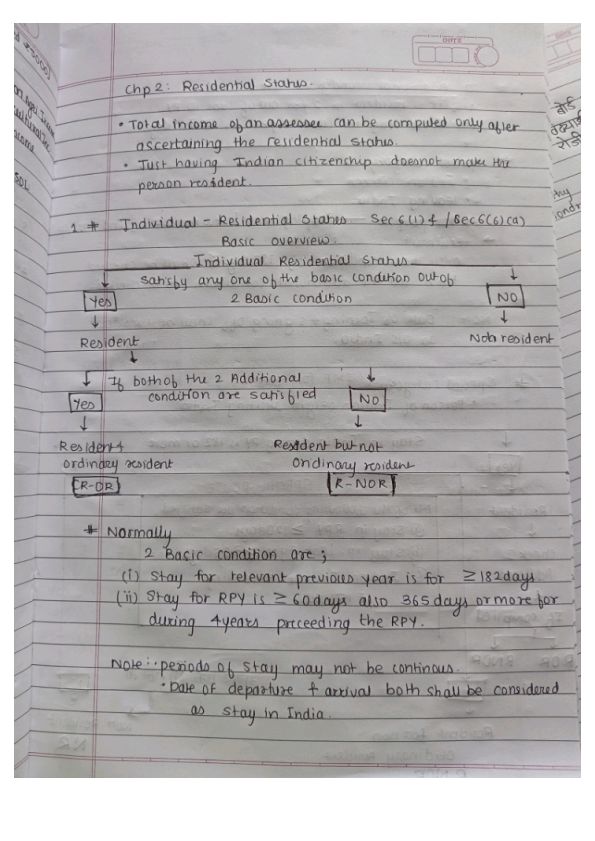 DATE
Chp 2: Residential Status.
• Total income of an assessee can be computed only after
ascertaining the residential status.
• Just having Indian citizenship doesnot make the
person resident.
1 # Individual - Residential Status Sec 6(1) & / Sec 6(6)(a)
Basic overview.
Individual Residential Status
Satisfy any one of the basic condition out of
2 Basic condition
Yes
NO
Resident
Not a resident
If both of the 2 Additional
condition are satisfied
Yes
NO
Resident &
ordinary resident
R-OR
Resident but not
ordinary resident
R-NOR
# Normally
2 Basic condition are ;
(i) Stay for relevant previous year is for ≥ 182 days
(ii) Stay for RPY is ≥ 60 days also 365 days or more for
during 4 years prceeding the RPY.
Note:• periods of stay may not be continous.
• Date of departure & arrival both shall be considered
as stay in India.